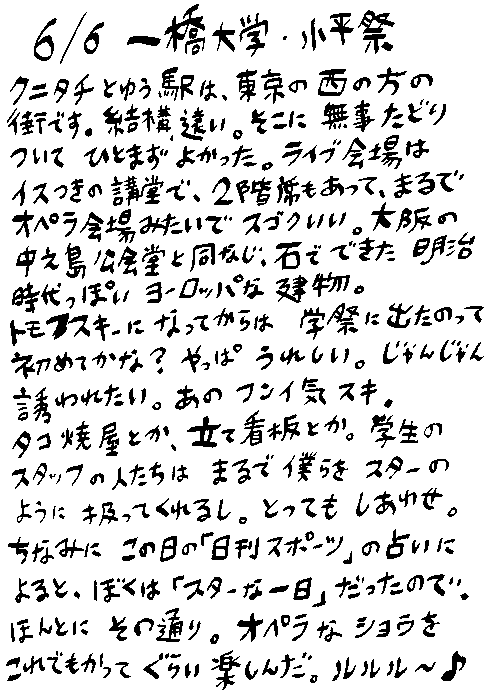 6/6 一橋大学・小平祭
クニタチとゆう駅は、東京の西の方の
街です。結構、遠い。そこに無事たどり
ついて ひとまず よかった。ライブ会場は
イスつきの講堂で、2階席もあって、まるで
オペラ会場みたいで スゴクいい。大阪の
中之島公会堂と同なじ、石でできた 明治
時代っぽい ヨーロッパな 建物。
トモフスキーに なってからは 学祭に出たのって
初めてかな? やっぱ うれしい。じゃんじゃん
誘われたい。あの フンイ気 スキ。
タコ焼屋とか、立て看板とか。学生の
スタッフの人たちは まるで僕らを スターの
ように 扱ってくれるし。とっても しあわせ。
ちなみに この日の「日刊スポーツ」の占いに
よると、ぼくは「スターな一日」だったので。
ほんとに その通り。オペラな ショウを
これでもかって ぐらい 楽しんだ。ルルル〜♪